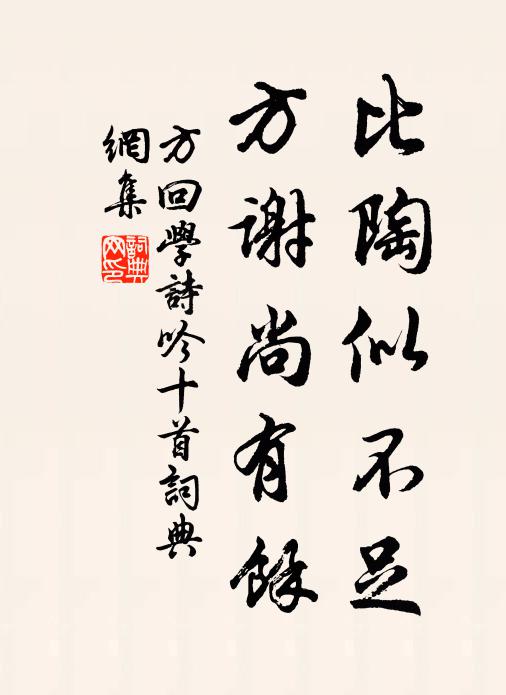 比陶似不足
方謝尚有餘
方回學詩吟十首詞典
網集
詞典網印